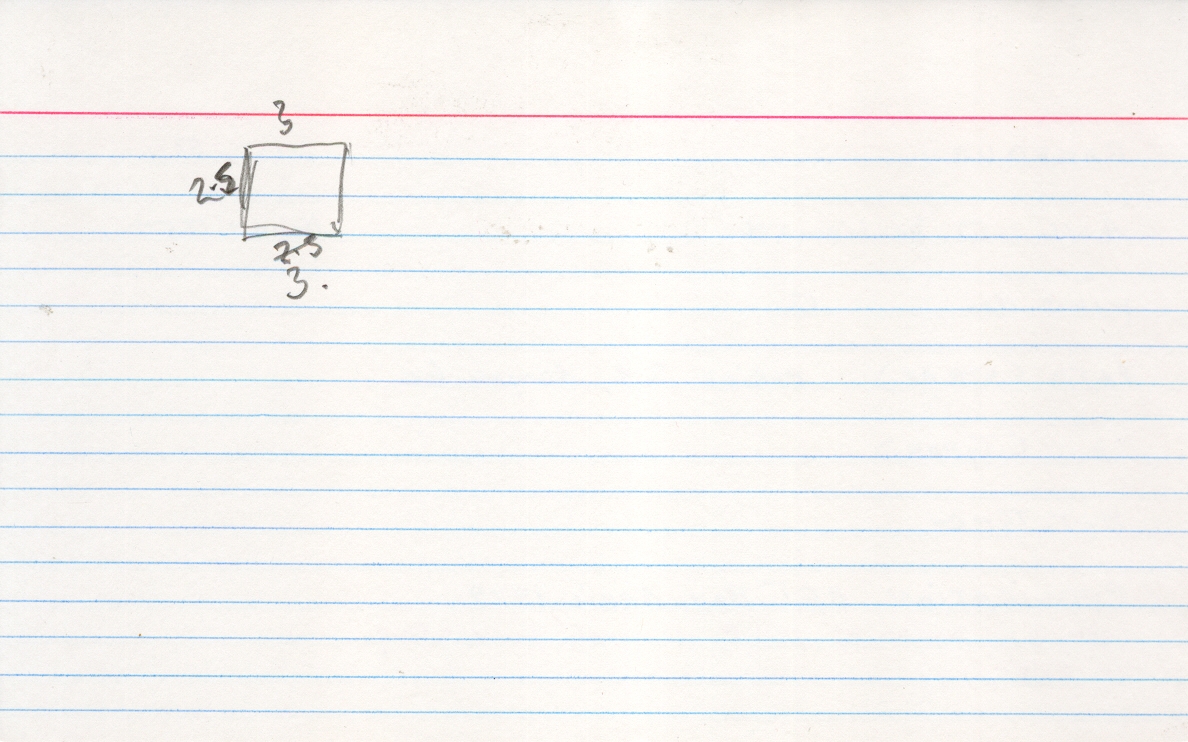 3
2.5
2.5
3.